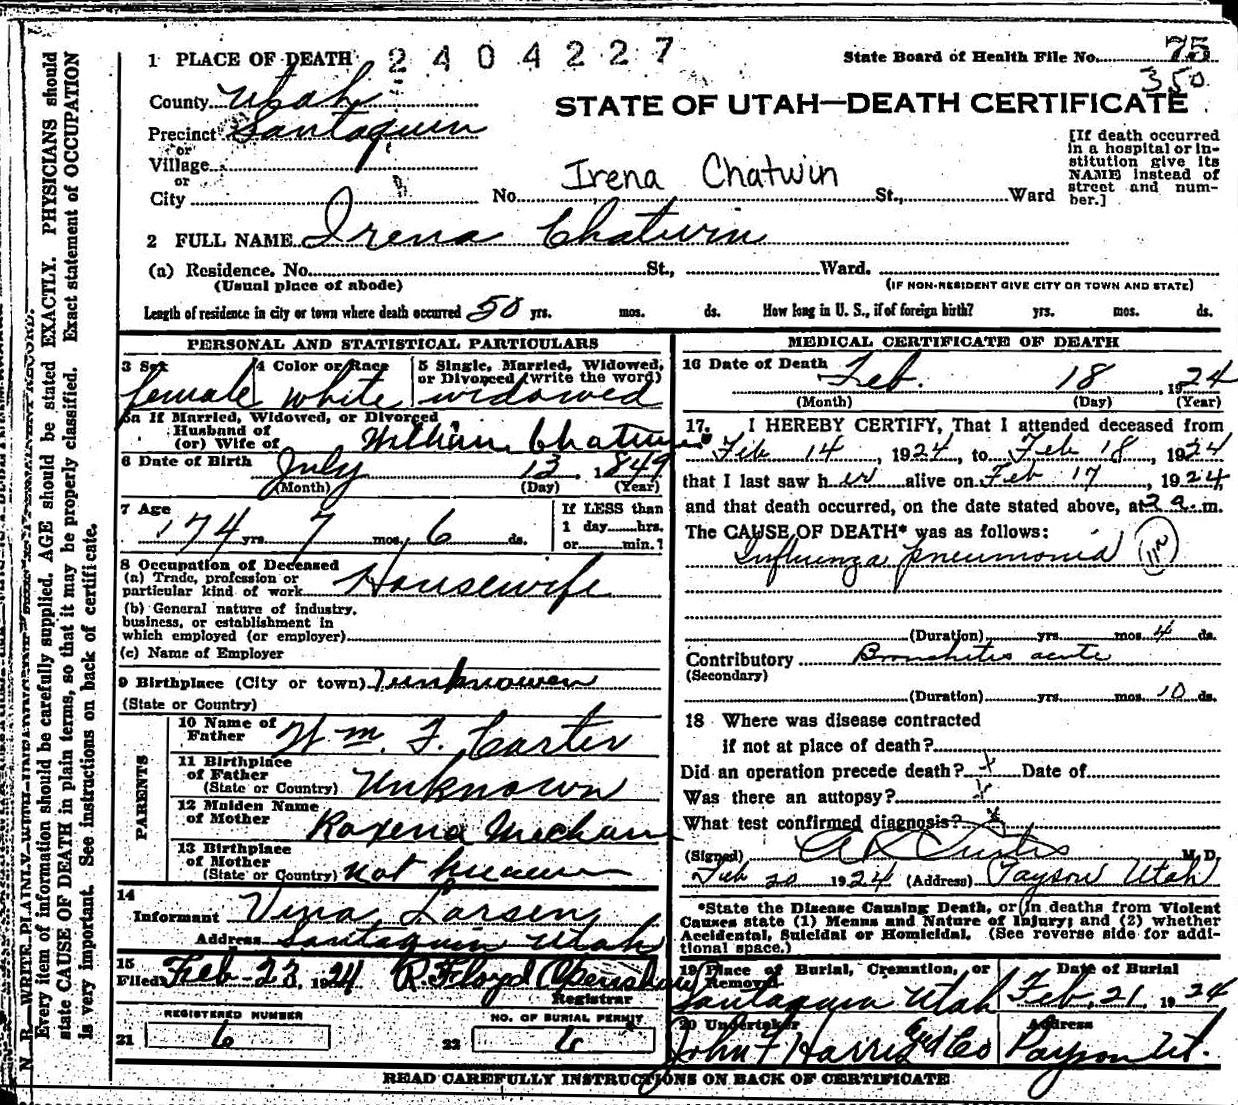 1 PLACE OF DEATH 2404227
State Board of Health File No. 75
350
County Utah
STATE OF UTAH—DEATH CERTIFICATE
Precinct Santaquin
or
Village
or
City
No. Irena Chatwin St., Ward
[If death occurred
in a hospital or in-
stitution give its
NAME instead of
street and num-
ber.]
2 FULL NAME Irena Chatwin
(a) Residence. No. St., Ward.
(Usual place of abode) (IF NON-RESIDENT GIVE CITY OR TOWN AND STATE)
Length of residence in city or town where death occurred 50 yrs. mos. ds. How long in U. S., if of foreign birth? yrs. mos. ds.
PERSONAL AND STATISTICAL PARTICULARS
3 Sex 4 Color or Race 5 Single, Married, Widowed,
or Divorced (write the word)
female white widowed
5a If Married, Widowed, or Divorced
Husband of
(or) Wife of William Chatwin
6 Date of Birth July 13, 1849
(Month) (Day) (Year)
7 Age If LESS than
74 yrs. 7 mos. 6 ds. 1 day hrs.
or min.?
8 Occupation of Deceased
(a) Trade, profession or
particular kind of work Housewife
(b) General nature of industry,
business, or establishment in
which employed (or employer)
(c) Name of Employer
9 Birthplace (City or town)
(State or Country)
PARENTS
10 Name of
Father Wm. F. Carter
11 Birthplace
of Father
(State or Country) Unknown
12 Maiden Name
of Mother Roxena Mecham
13 Birthplace
of Mother
(State or Country) not known
14
Informant Vina Larsen
Address Santaquin Utah
15
Filed Feb 23, 1924 R. Floyd Openshaw
Registrar
REGISTERED NUMBER NO. OF BURIAL PERMIT
21 6 22 6
MEDICAL CERTIFICATE OF DEATH
16 Date of Death Feb. 18, 1924
(Month) (Day) (Year)
17. I HEREBY CERTIFY, That I attended deceased from
Feb 14, 1924, to Feb 18, 1924
that I last saw her alive on Feb 17, 1924
and that death occurred, on the date stated above, at 2 a. m.
The CAUSE OF DEATH* was as follows:
Influenza pneumonia
(Duration) yrs. mos. 4 ds.
Contributory Bronchitis acute
(Secondary)
(Duration) yrs. mos. 10 ds.
18 Where was disease contracted
if not at place of death?
Did an operation precede death? x Date of
Was there an autopsy? x
What test confirmed diagnosis? x
(Signed) A L Curtis M. D.
Feb 20 1924 (Address) Payson Utah
*State the Disease Causing Death, or in deaths from Violent
Causes state (1) Means and Nature of Injury; and (2) whether
Accidental, Suicidal or Homicidal. (See reverse side for addi-
tional space.)
19 Place of Burial, Cremation, or Date of Burial
Removal
Santaquin Utah Feb. 21 1924
20 Undertaker Address
John F Harris Co Payson Ut.
READ CAREFULLY INSTRUCTIONS ON BACK OF CERTIFICATE
N. B. WRITE PLAINLY
Every item of information should be carefully supplied. AGE should be stated EXACTLY. PHYSICIANS should
state CAUSE OF DEATH in plain terms, so that it may be properly classified. Exact statement of OCCUPATION
is very important. See instructions on back of certificate.